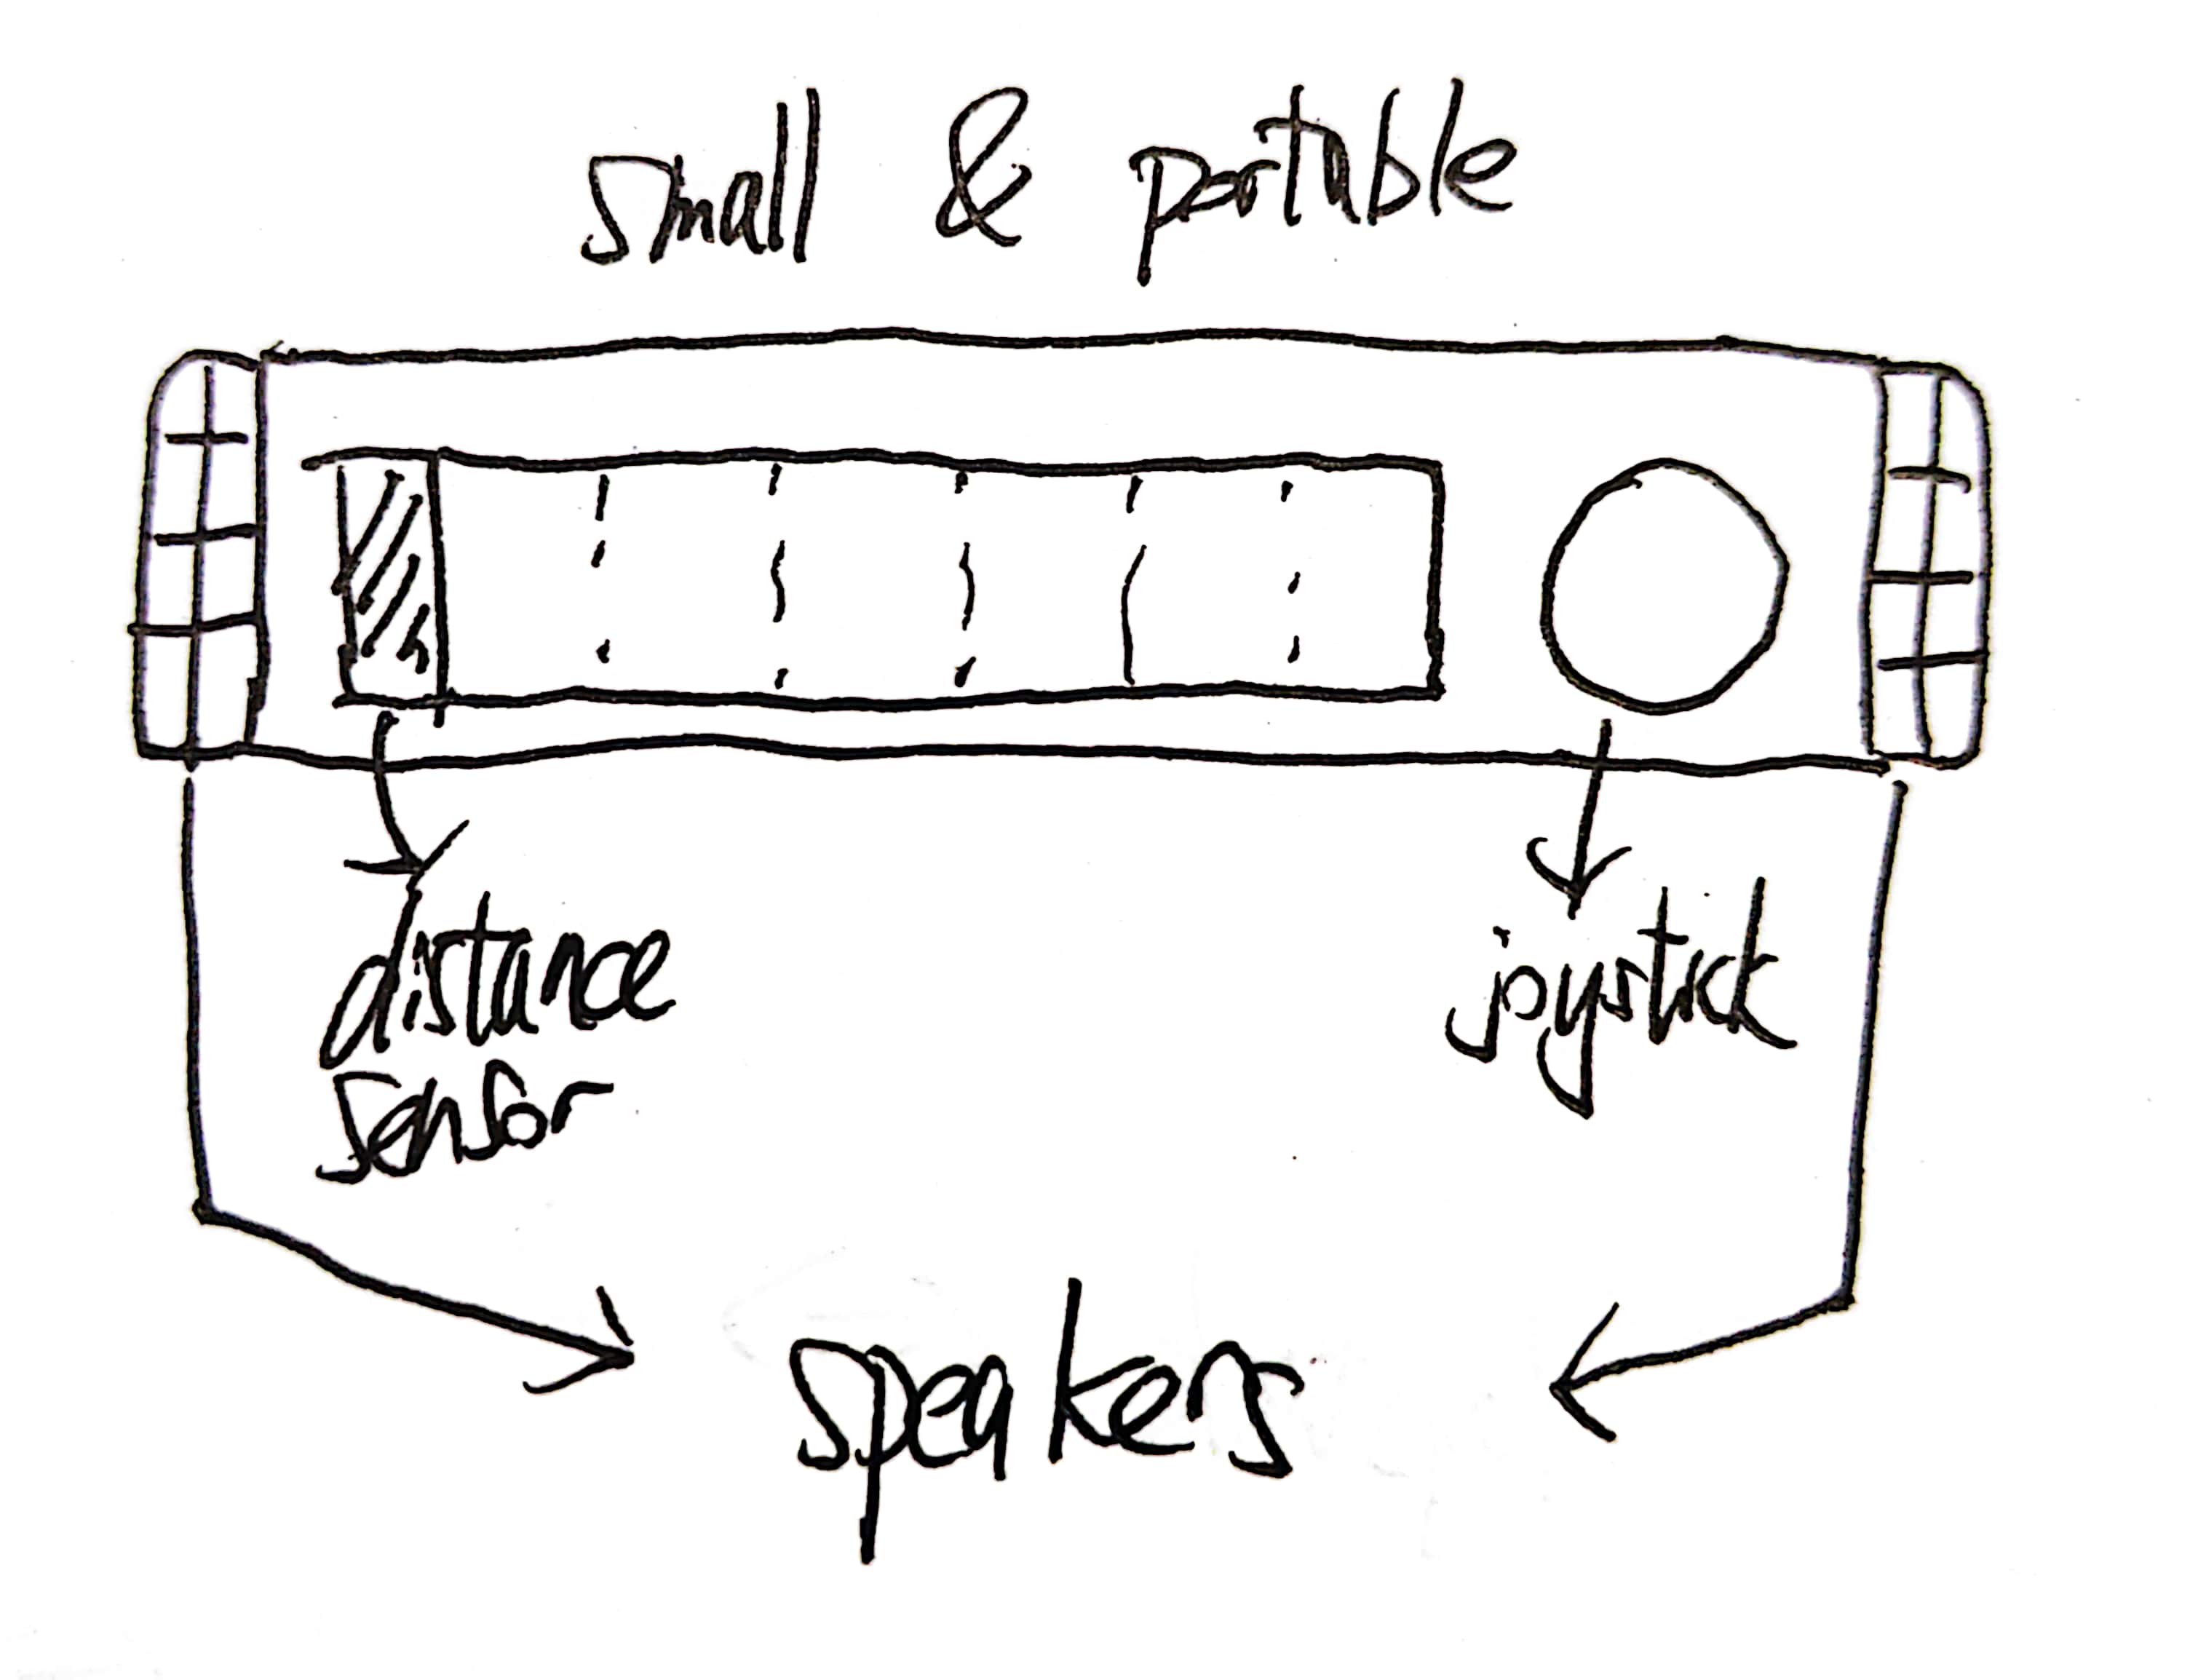 small & portable
distance
sensor
joystick
speakers